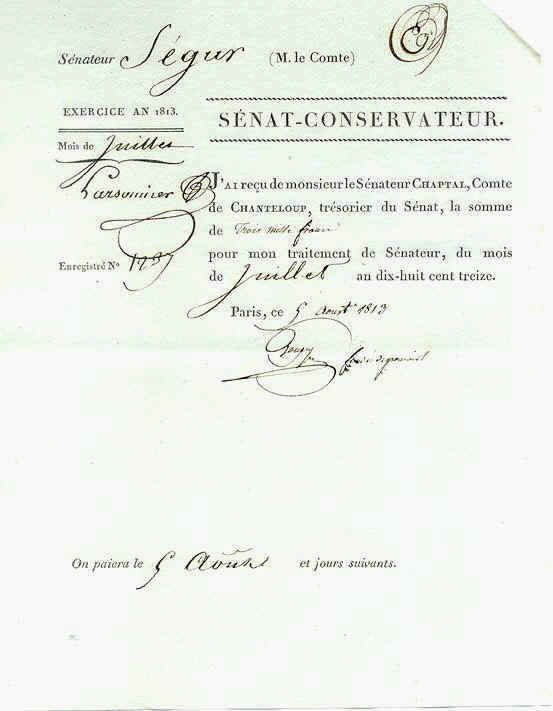 Sénateur Ségur (M. le Comte)
EXERCICE AN 1813.
SÉNAT-CONSERVATEUR.
Mois de Juillet
J'AI reçu de monsieur le Sénateur CHAPTAL, Comte
de CHANTELOUP, trésorier du Sénat, la somme
de Trois mille francs
pour mon traitement de Sénateur, du mois
de Juillet an dix-huit cent treize.
Enregistré N°
Paris, ce 5 Aoust 1813
On paiera le 5 Août et jours suivants.